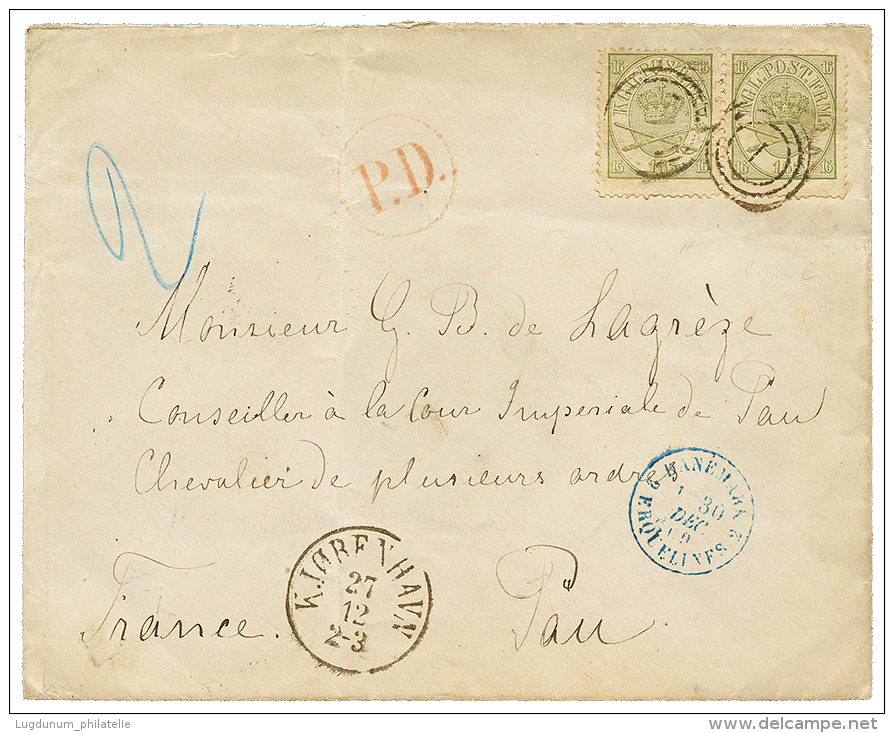 16 16 16 16
KGL POST FRM KONGL.POST.FRM.
16 16S. 16 16 16
1
P.D.
2
Monsieur G. B. de Lagrèze
Conseiller à la Cour Imperiale de Pau
Chevalier de plusieurs ordres
6 DANEMARK
30
DEC
ERQUELINES 2
KJØBENHAVN
27
12
2-3
France. Pau
Lugdunum_philatelie
delcampe.net